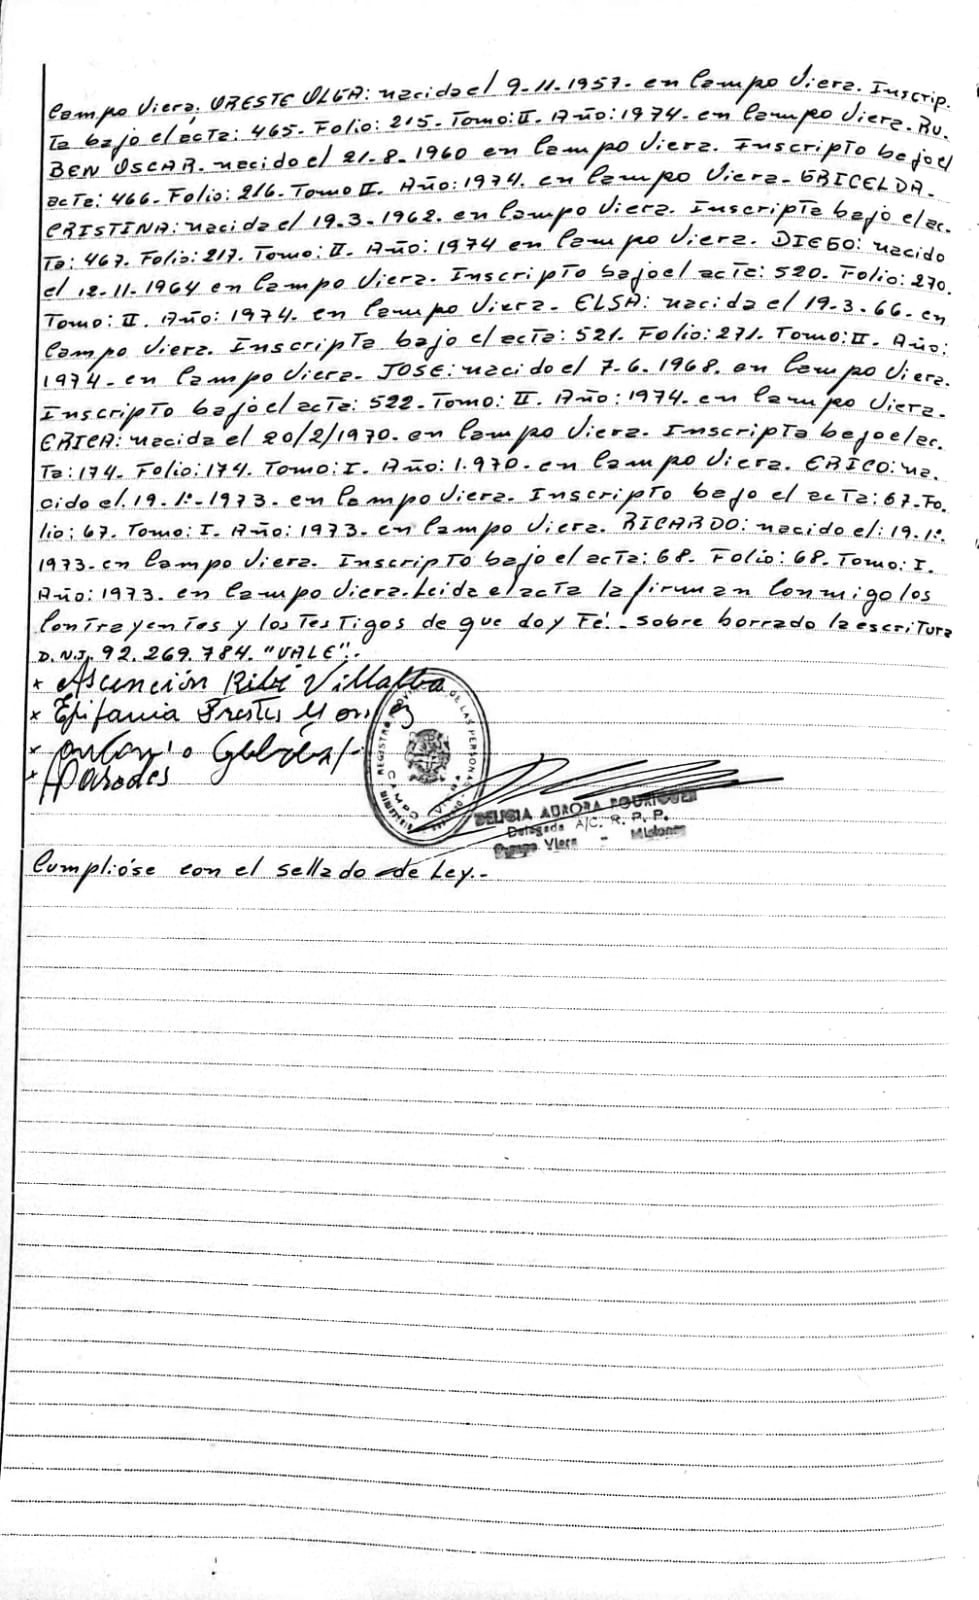 Campo Viera. ORESTE OLGA: nacida el 9-11-1957- en Campo Viera. Inscrip.
ta bajo el acta: 465- Folio: 215- Tomo: II. Año: 1974- en Campo Viera. RU.
BEN OSCAR. nacido el 21-8-1960 en Campo Viera. Inscripto bajo el
acta: 466- Folio: 216- Tomo II. Año: 1974. en Campo Viera- GRICELDA-
CRISTINA: nacida el 19-3-1962. en Campo Viera. Inscripta bajo el ac.
ta: 467. Folio: 217. Tomo: II. Año: 1974 en Campo Viera. DIEGO: nacido
el 12-11-1964 en Campo Viera. Inscripto bajo el acta: 520. Folio: 270.
Tomo: II. Año: 1974. en Campo Viera- ELSA: nacida el 19-3-66. en
Campo Viera. Inscripta bajo el acta: 521. Folio: 271. Tomo: II. Año:
1974- en Campo Viera- JOSE: nacido el 7-6-1968. en Campo Viera.
Inscripto bajo el acta: 522- Tomo: II. Año: 1974. en Campo Viera-
ERICA: nacida el 20/2/1970- en Campo Viera. Inscripta bajo el ac.
ta: 174. Folio: 174. Tomo: I. Año: 1.970- en Campo Viera. ERICO: na.
cido el. 19-1º-1973- en Campo Viera. Inscripto bajo el acta: 67- Fo.
lio: 67. Tomo: I. Año: 1973. en Campo Viera. RICARDO: nacido el: 19-1º.
1973- en Campo Viera. Inscripto bajo el acta: 68. Folio: 68. Tomo: I.
Año: 1973. en Campo Viera. Leida el acta la firman conmigo los
Contrayentes y los testigos de que doy Fé.- Sobre borrado la escritura
D.N.I. 92.269.784. "VALE".-
x Ascención Ribé Villalba
x Epifania Prestes
x
x Paredes
REGISTRO PROVINCIAL DE LAS PERSONAS
CAMPO VIERA
MINISTERIO
DELICIA AURORA RODRIGUEZ
Delegada A/C. R. P. P.
Campo Viera - Misiones
Cumplióse con el sellado de Ley.-